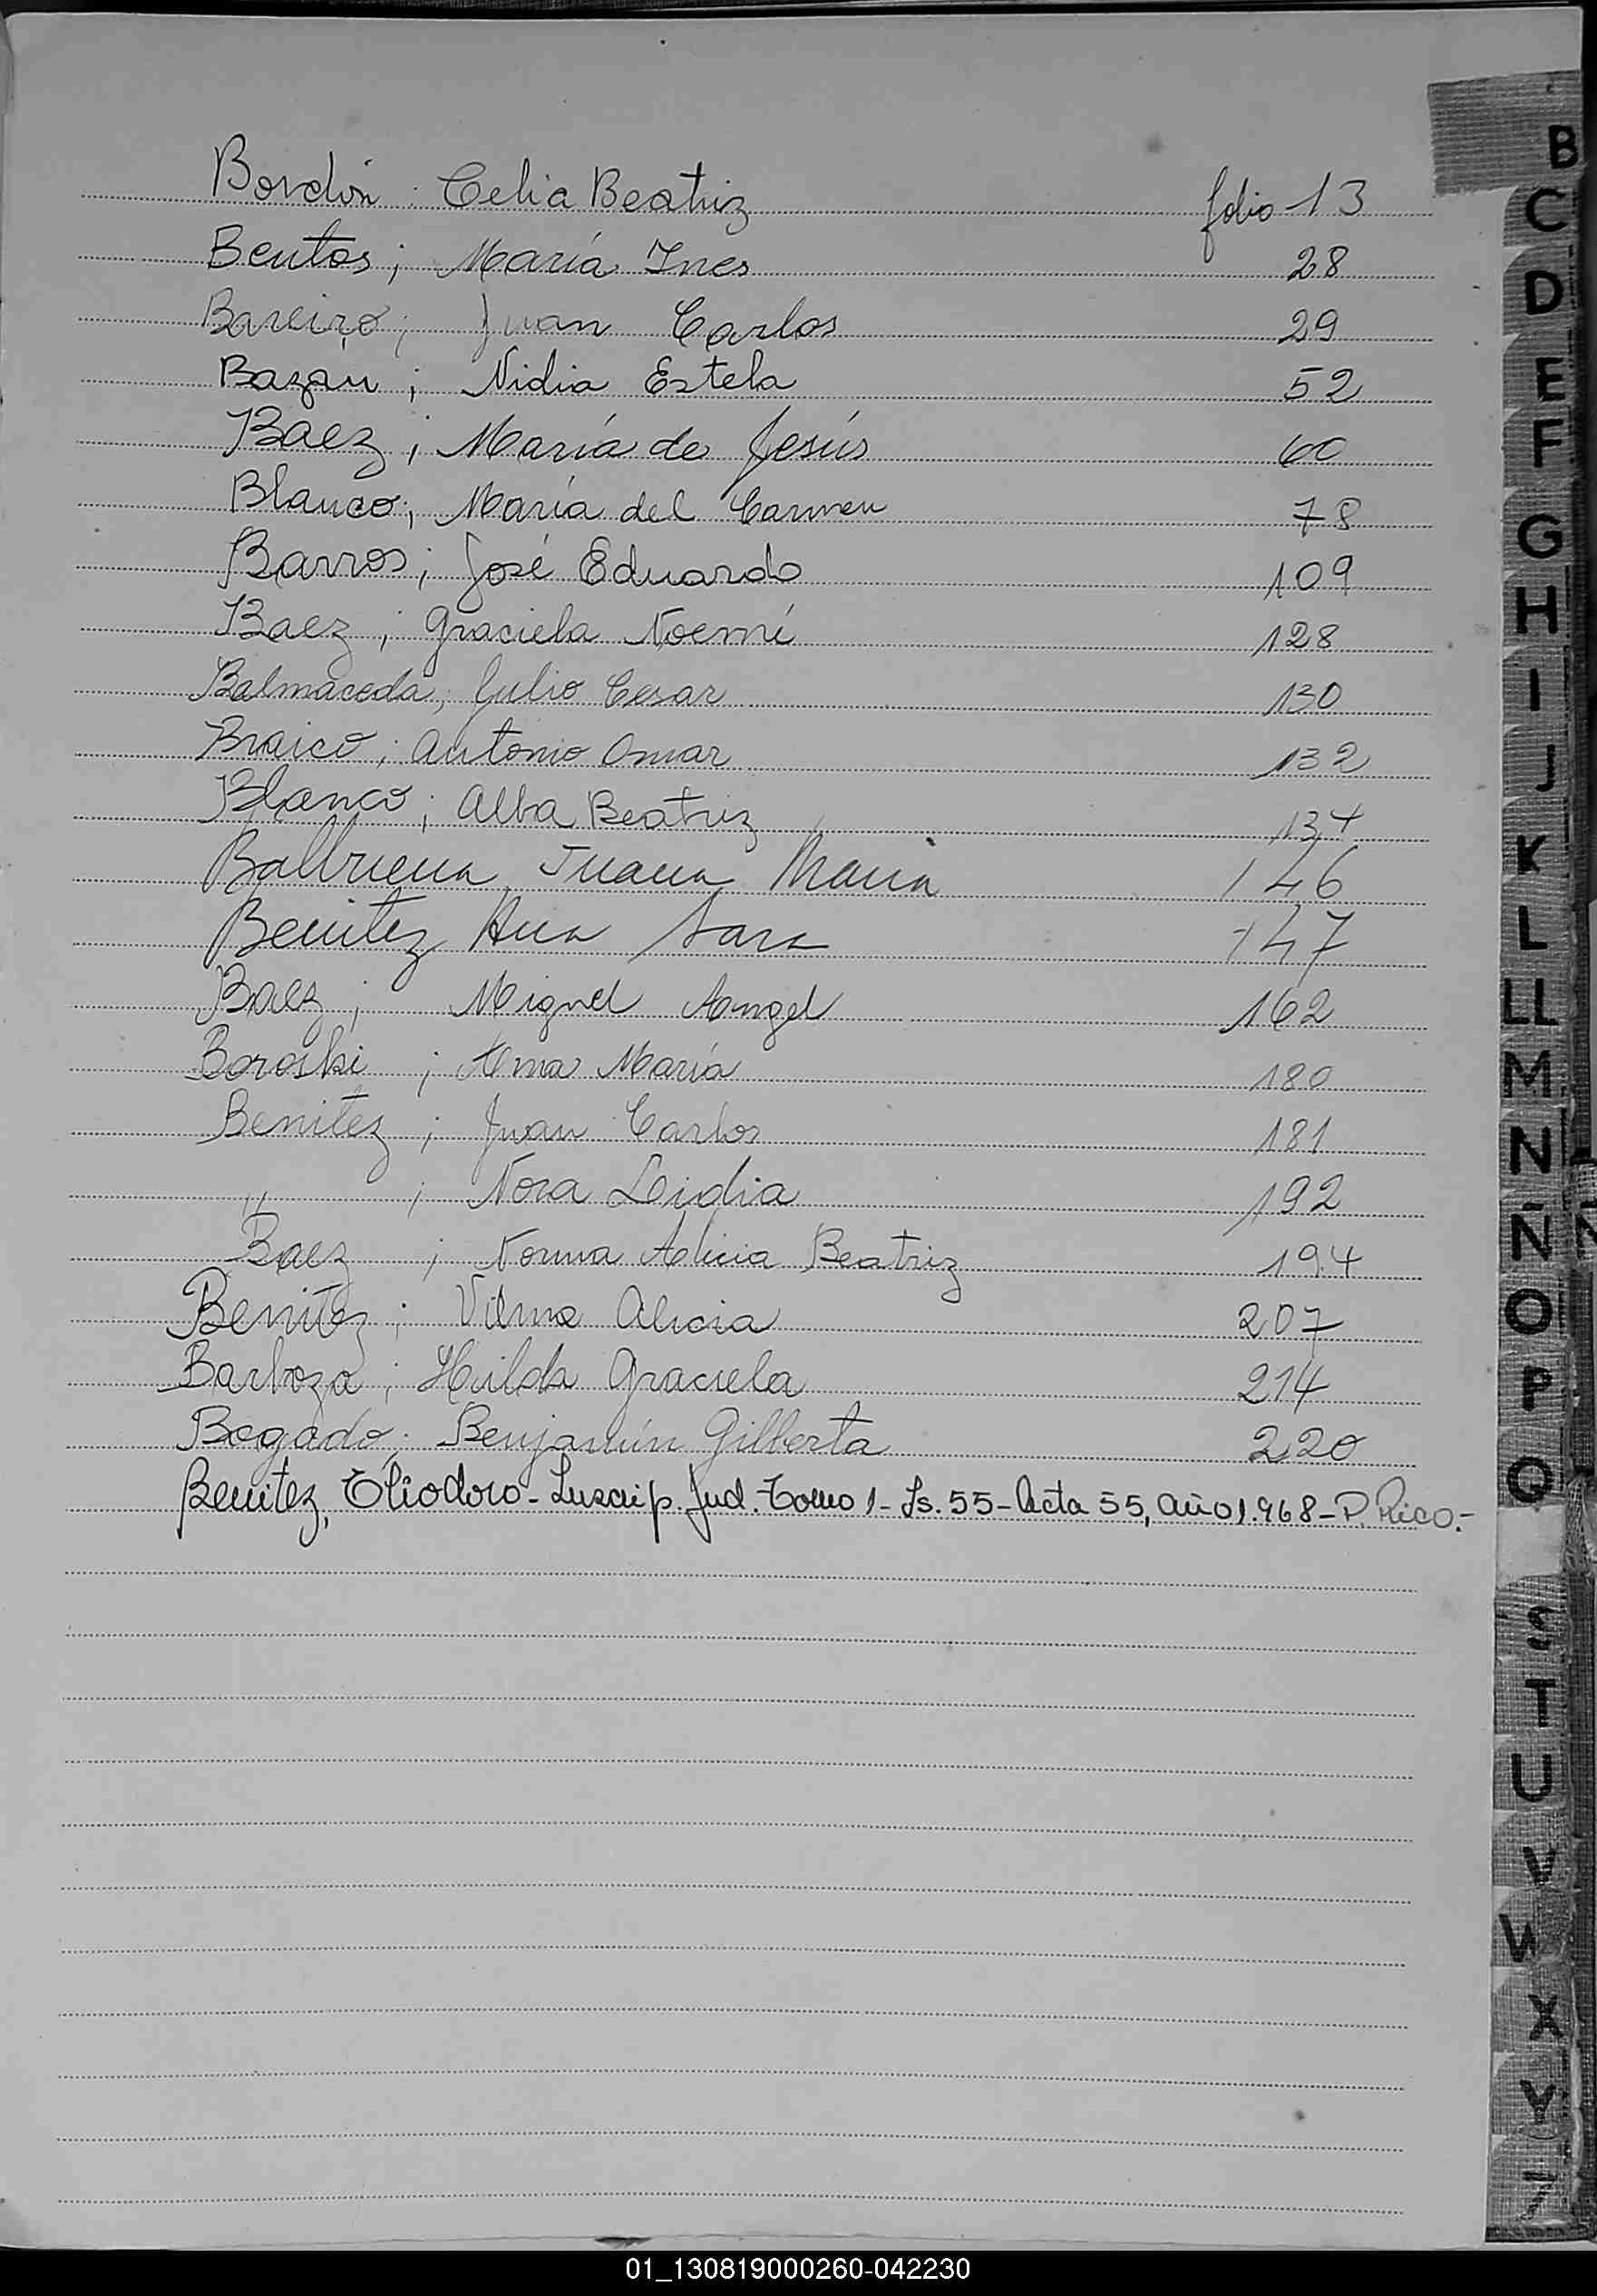 Bordón ; Celia Beatriz folio 13
Bentos ; María Ines 28
Bareiro ; Juan Carlos 29
Bazan ; Nidia Estela 52
Baez ; María de Jesús 60
Blanco ; María del Carmen 78
Barros ; José Eduardo 109
Baez ; Graciela Noemí 128
Balmaceda ; Julio Cesar 130
Braico ; Antonio Omar 132
Blanco ; Alba Beatriz 134
Balbuena, Juana Maria 146
Benitez Ana Sara 147
Baez ; Miguel Angel 162
Boroski ; Ana María 180
Benitez ; Juan Carlos 181
" ; Nora Lidia 192
Baez ; Norma Alicia Beatriz 194
Benitez ; Vilma Alicia 207
Barboza ; Hilda Graciela 214
Bogado ; Benjamín Gilberto 220
Benitez, Eliodoro - Inscrip. Jud. - Tomo 1 - Fs. 55 - Acta 55, año 1.968 - P. Rico.-
B
C
D
E
F
G
H
I
J
K
L
LL
M
N
Ñ
O
P
Q
S
T
U
V
W
X
Y
Z
01_130819000260-042230